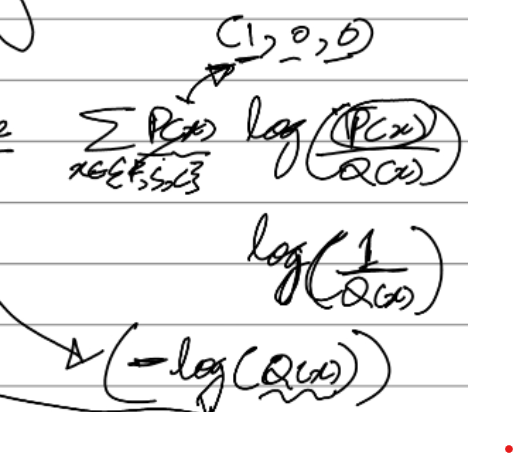 (1, 0, 0)
∑ P(x) log(P(x)/Q(x))
log(1/Q(x))
(-log(Q(x)))